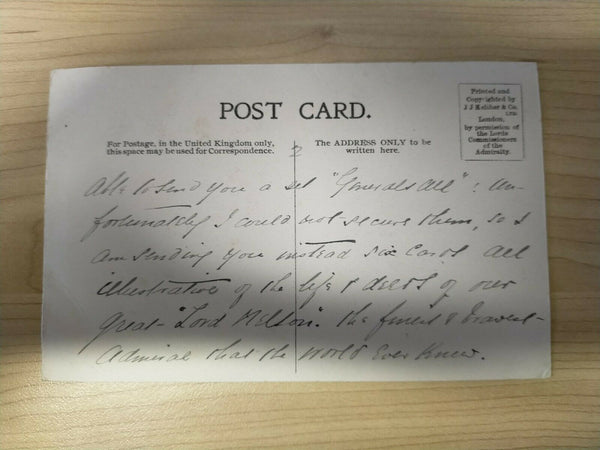 POST CARD.
Printed and
Copyrighted by
J J Keliher & Co.
LTD.
London,
by permission of
the Lords
Commissioners
of the
Admiralty.
For Postage, in the United Kingdom only,
this space may be used for Correspondence.
The ADDRESS ONLY to be
written here.
2
Able to send you a set "Generals All": un-
fortunately I could not secure them, so I
am sending you instead six cards all
illustrative of the life & deeds of our
great "Lord Nelson". the finest & bravest
Admiral that the world ever knew.